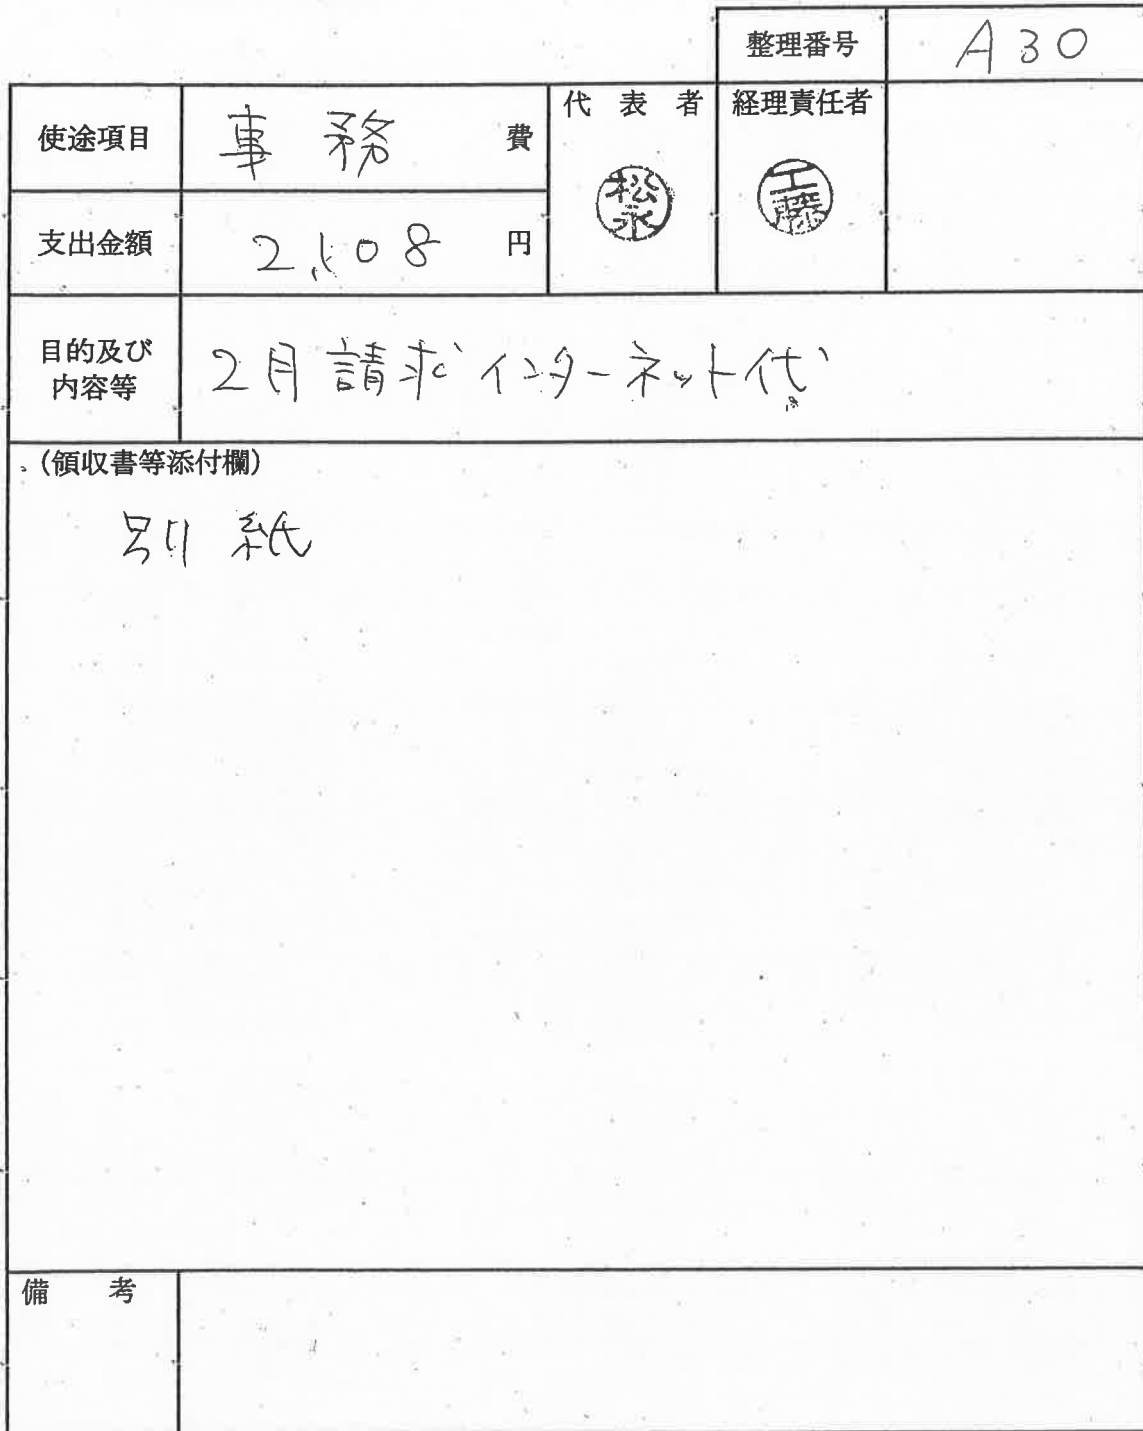 整理番号 A30
使途項目 事務 費
代表者 経理責任者
松永 工藤
支出金額 2,108 円
目的及び内容等 2月請求インターネット代
(領収書等添付欄)
別紙
備考